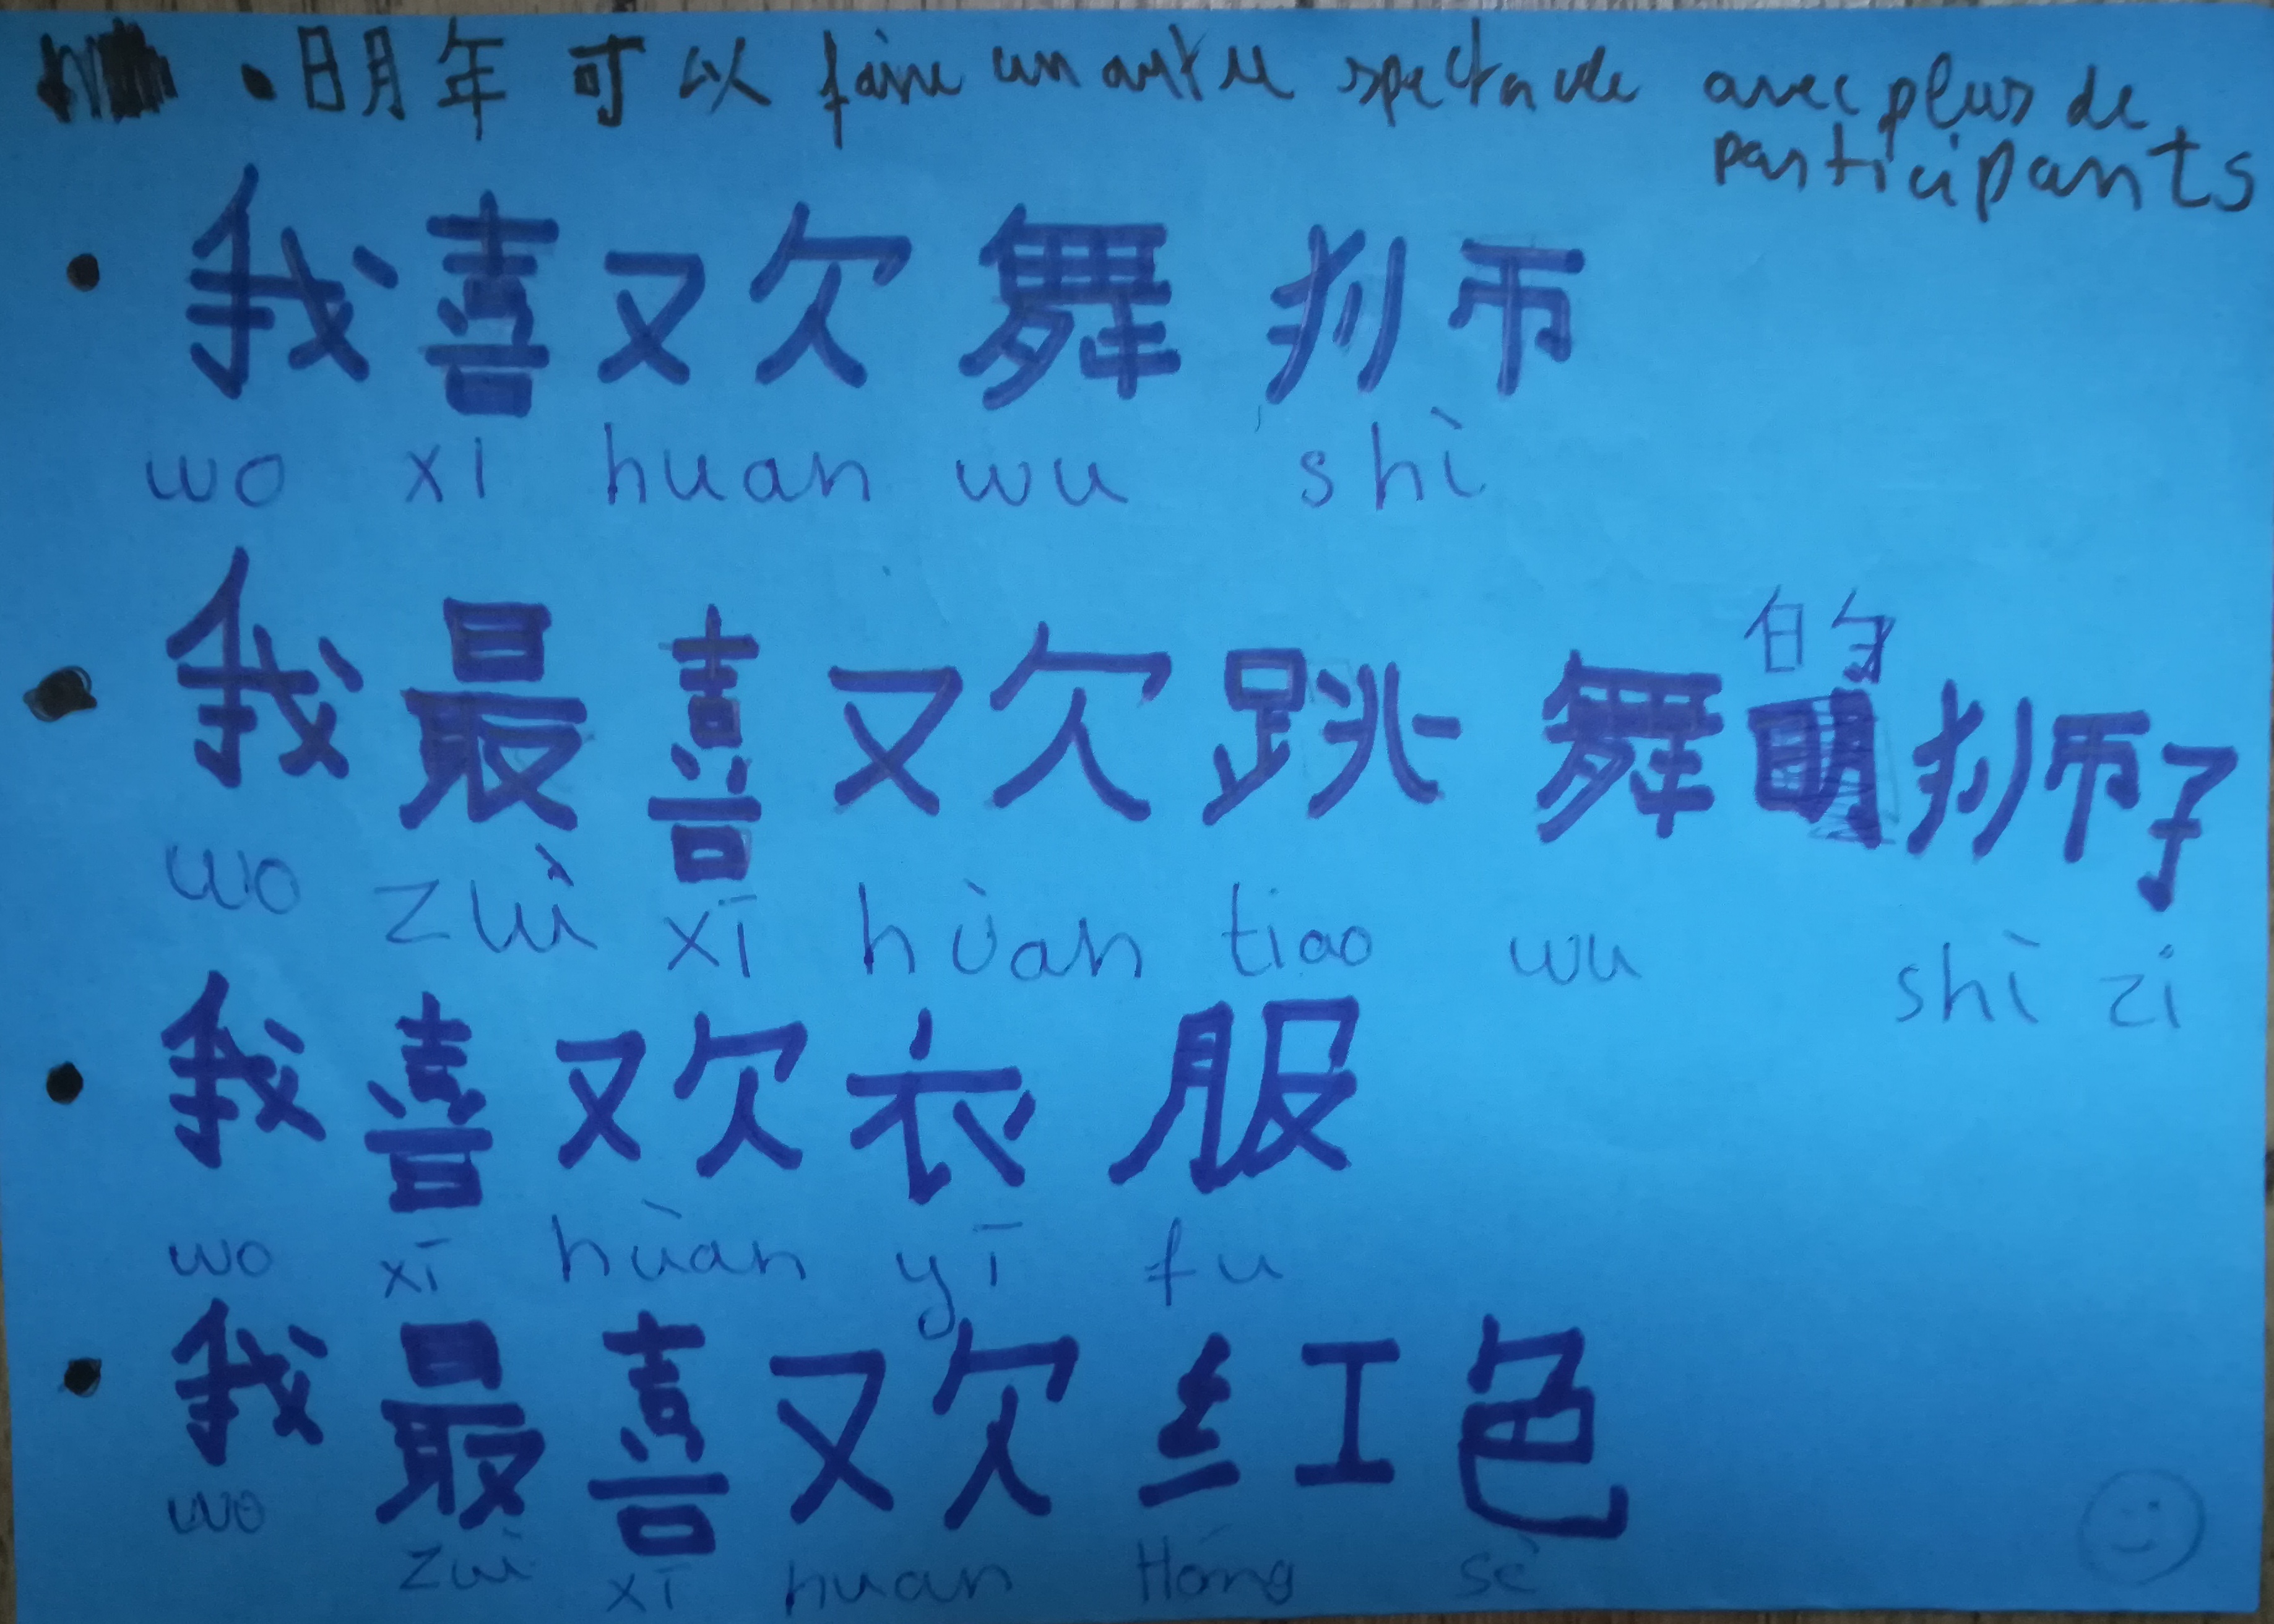 • 明年可以 faire un autre spectacle avec plus de
participants
• 我喜欢舞狮
wo xi huan wu shì
• 我最喜欢跳舞的狮子
wo zuì xī hùan tiao wu shì zi
• 我喜欢衣服
wo xī hùan yī fu
• 我最喜欢红色
wo zuì xī huan Hóng sè